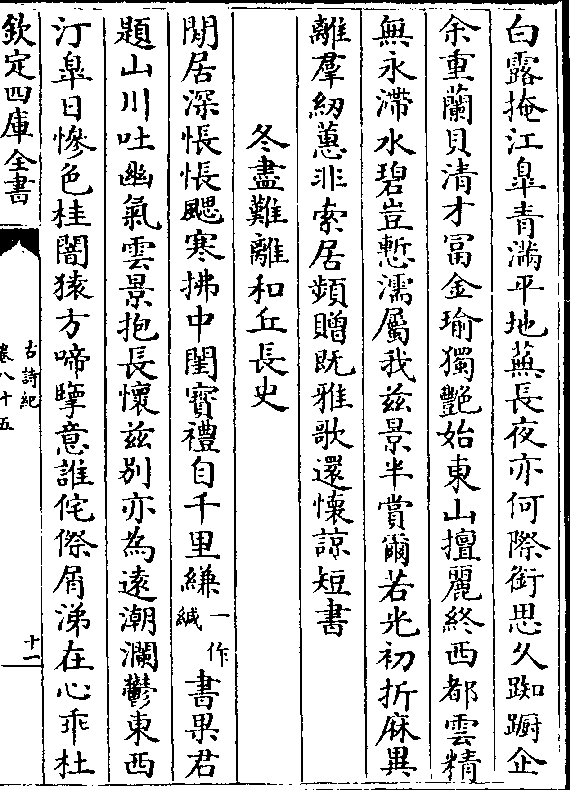 白露掩江臯青滿平地蕪長夜亦何際銜思久踟蹰企
余重蘭貝清才冨金瑜獨艷始東山擅麗終西都雲精
無永滯水碧豈慙濡屬我兹景半賞爾若光初折麻異
離羣紉蕙非索居頻贈既雅歌還懷諒短書
冬盡難離和丘長史
閒居深悵悵颸寒拂中閨寳禮自千里縑一作緘書果君
題山川吐幽氣雲景抱長懷兹别亦為遠潮瀾鬱東西
汀臯日慘色桂闇猿方啼孽意誰侘傺屑涕在心乖杜
欽定四庫全書
古詩紀
卷八十五
十一